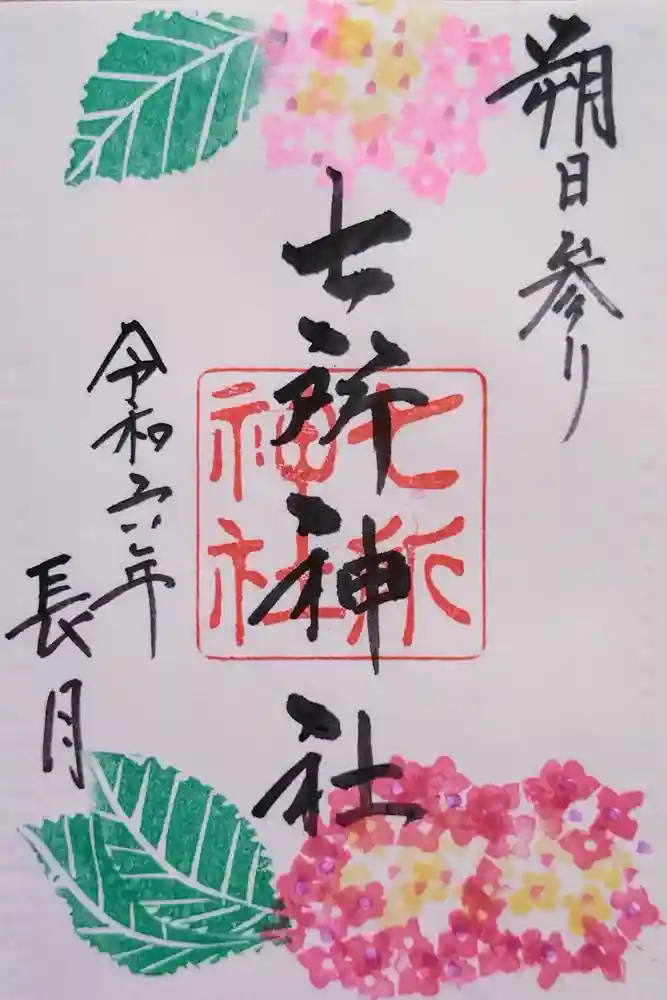 朔日参り
七所神社
七所
神社
令和六年
長月